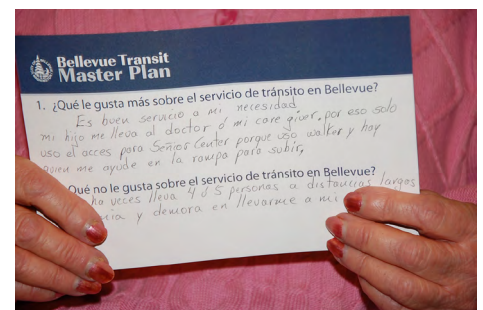 Bellevue Transit
Master Plan
1. ¿Qué le gusta más sobre el servicio de tránsito en Bellevue?
Es buen servicio a mi necesidad
mi hijo me lleva al doctor ó mi care giver, por eso solo
uso el acces para Señior Center porque uso walker y hay
quien me ayude en la rampa para subir,
Qué no le gusta sobre el servicio de tránsito en Bellevue?
ha veces lleva 4 ó 5 personas a distancias largas
y demora en llevarme a mi